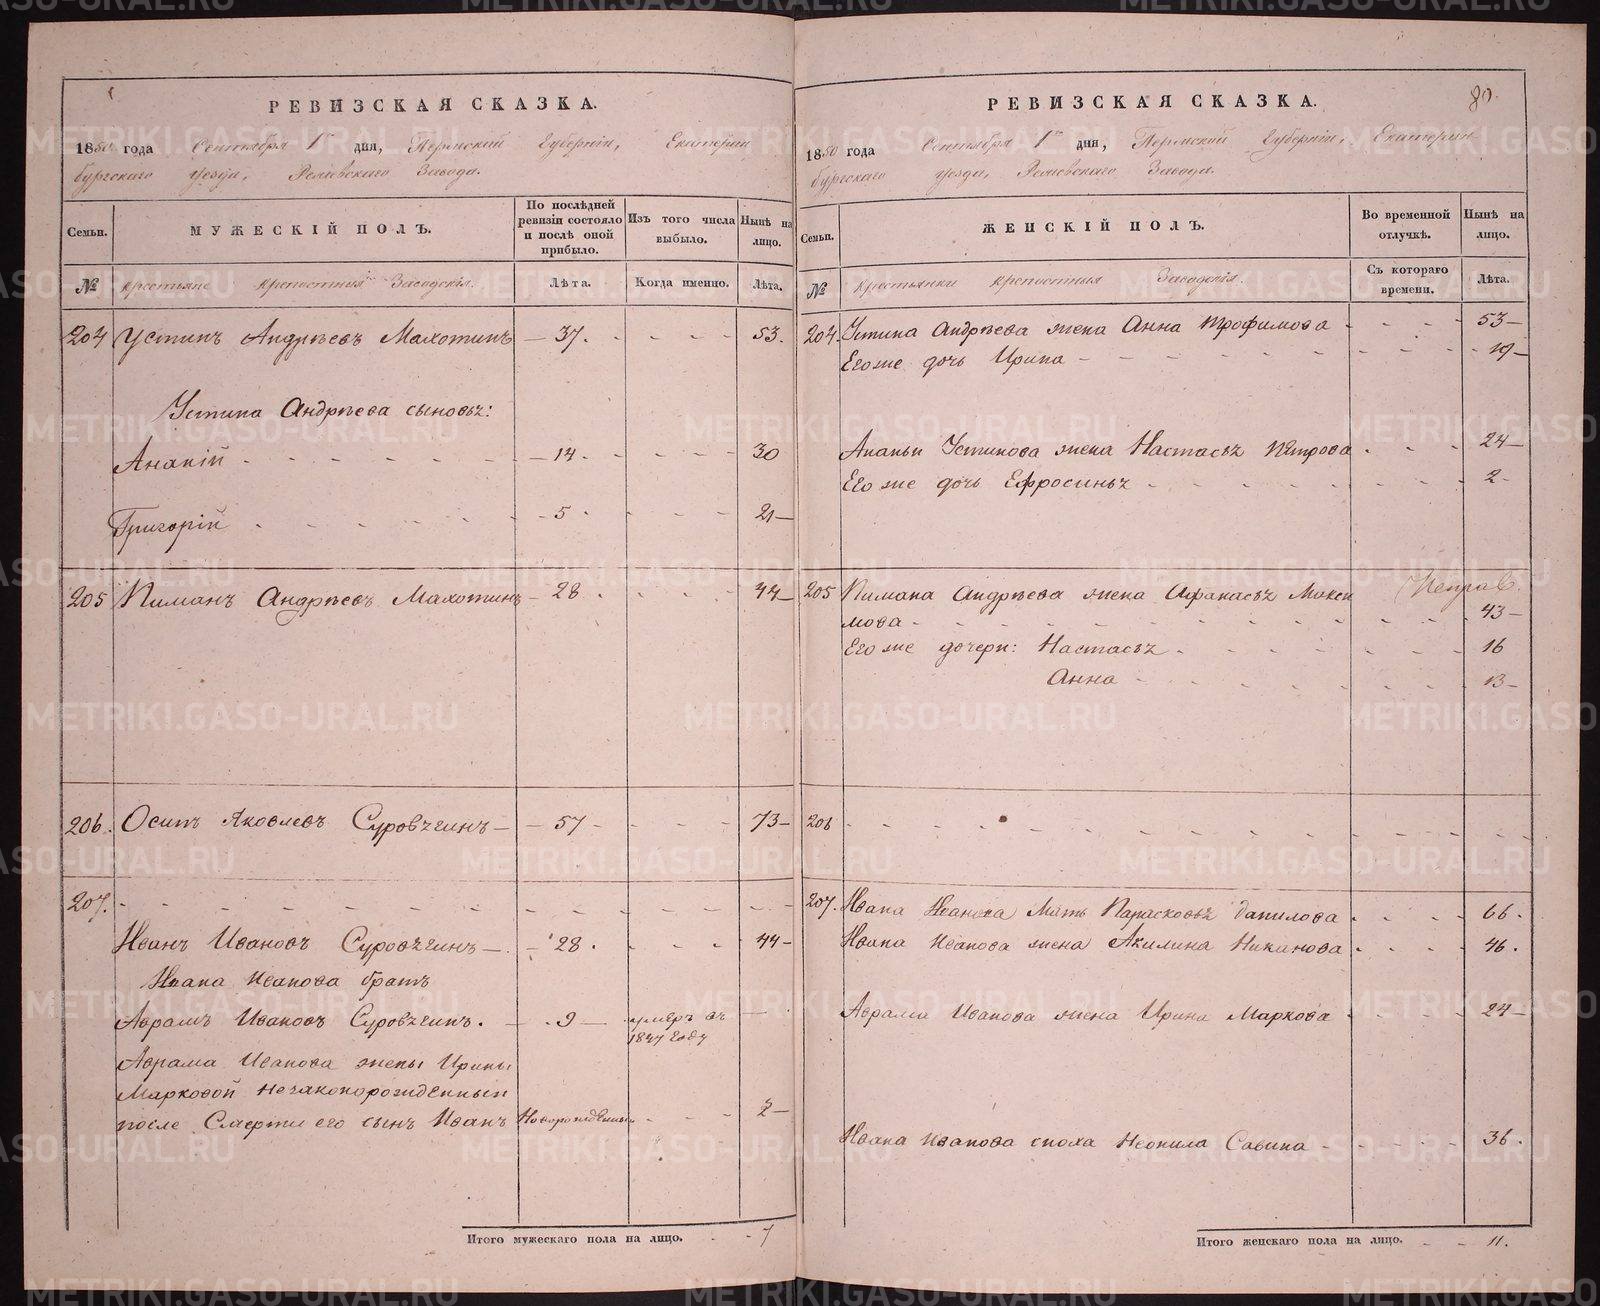 РЕВИЗСКАЯ СКАЗКА.
1850 года Сентября 1го дня, Пермской Губерніи, Екатерин
бургскаго уезда, Режевскаго Завода.
Семьи.
МУЖЕСКІЙ ПОЛЪ.
По послѣдней ревизіи состояло и послѣ оной прибыло.
Изъ того числа выбыло.
Нынѣ на лицо.
№
крестьяне крепостныя Заводскія.
Лѣта.
Когда именно.
Лѣта.
204 Устинъ Андрѣевъ Махотинъ — 37. 53.
Устина Андрѣева сыновья:
Ананій — 14 — 30
Григорій — 5 21 —
205 Пиманъ Андрѣевъ Махотинъ — 28 44 —
206. Осипъ Яковлевъ Суровчгинъ — 57 — 73 —
207.
Иванъ Ивановъ Суровчгинъ — 28. 44 —
Ивана Иванова братъ
Аврамъ Ивановъ Суровчгинъ. — 9 — умеръ въ
1847 году
Аврама Иванова жены Ирины
Марковой незаконорожденный
после Смерти его сынъ Иванъ Новорожденный 2 —
Итого мужескаго пола на лицо. 7
РЕВИЗСКАЯ СКАЗКА.
80.
1850 года Сентября 1го дня, Пермской Губерніи, Екатерин
бургскаго уезда, Режевскаго Завода.
Семьи.
ЖЕНСКІЙ ПОЛЪ.
Во временной отлучкѣ.
Нынѣ на лицо.
№
Крестьянки крепостныя Заводскія.
Съ котораго времени.
Лѣта.
204. Устина Андрѣева жена Анна Трофимова 53 —
Его же дочь Ирина — 19 —
Ананьи Устинова жена Настасья Петрова 24 —
Его же дочь Ефросинья 2 —
205 Пимана Андрѣева жена Афанасья Макси
мова 43 —
Его же дочери: Настасья 16
Анна 13 —
206
207. Ивана Иванова Мать Парасковья Данилова 66.
Ивана Иванова жена Акилина Никанова 46.
Аврама Иванова жена Ирина Маркова 24 —
Ивана Иванова сноха Неонила Савина 36.
Итого женскаго пола на лицо. 11.
METRIKI.GASO-URAL.RU